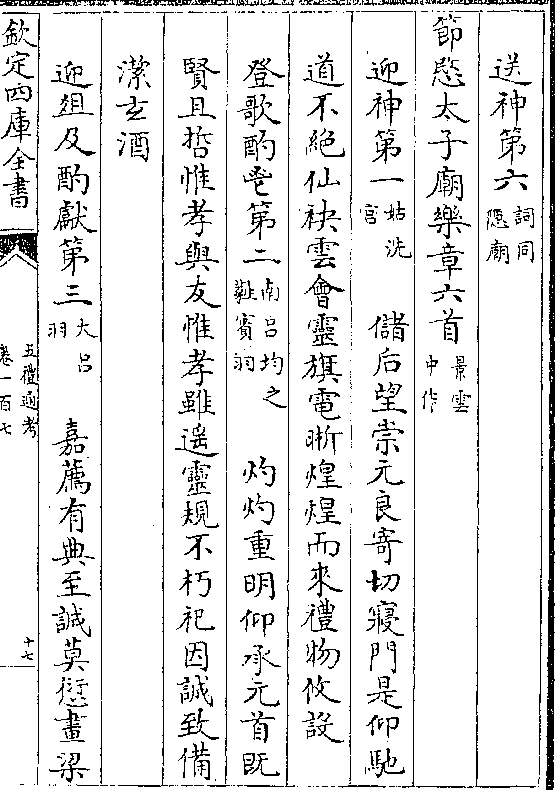 送神第六詞同隱廟
節愍太子廟樂章六首景雲中作
迎神第一姑洗宫 儲后望崇元良寄切寢門是仰馳
道不絕仙袂雲會靈旗電晰煌煌而來禮物攸設
登歌酌鬯第二南吕均之蕤賓羽 灼灼重明仰承元首既
賢且哲惟孝與友惟孝雖遥靈規不朽祀因誠致備
潔玄酒
迎俎及酌獻第三大吕羽 嘉薦有典至誠莫愆畫梁
欽定四庫全書
五禮通考
卷一百七
十七